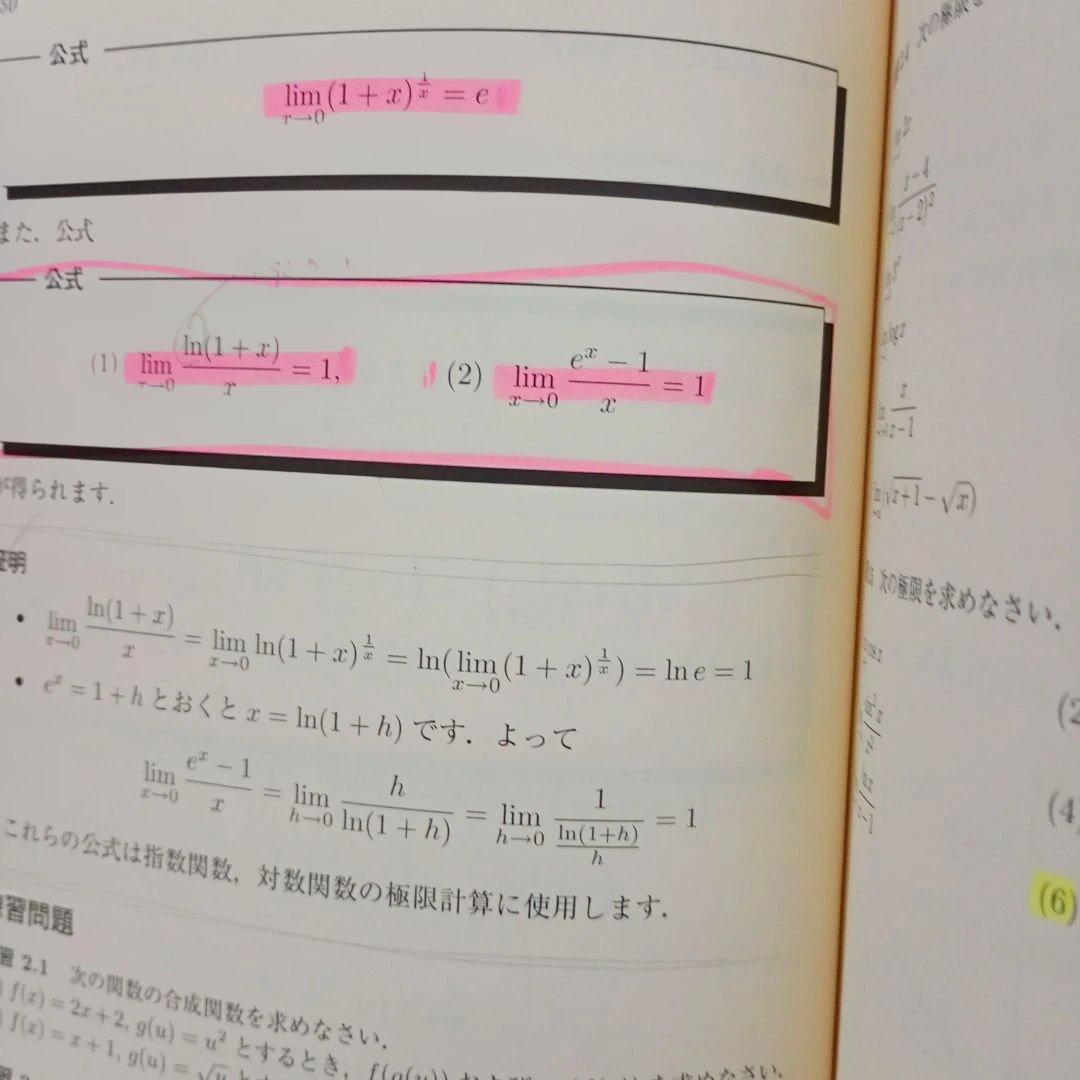 公式
lim x→0 (1 + x)^{1/x} = e
また，公式
公式
(1) lim x→0 ln(1 + x)/x = 1, (2) lim x→0 (e^x − 1)/x = 1
が得られます．
証明
• lim x→0 ln(1 + x)/x = lim x→0 ln(1 + x)^{1/x} = ln(lim x→0 (1 + x)^{1/x}) = ln e = 1
• e^x = 1 + h とおくと x = ln(1 + h) です．よって
lim x→0 (e^x − 1)/x = lim h→0 h/ln(1 + h) = lim h→0 1/(ln(1+h)/h) = 1
これらの公式は指数関数，対数関数の極限計算に使用します．
習問題
2.1 次の関数の合成関数を求めなさい．
f(x) = 2x + 2, g(u) = u^2 とするとき，f(g(u))
f(x) = x + 1, g(u) = √u
次の極限を
x−4/(x−2)^2
log x
x/x−1
(√x+1 − √x)
次の極限を求めなさい．
(4)
(6)